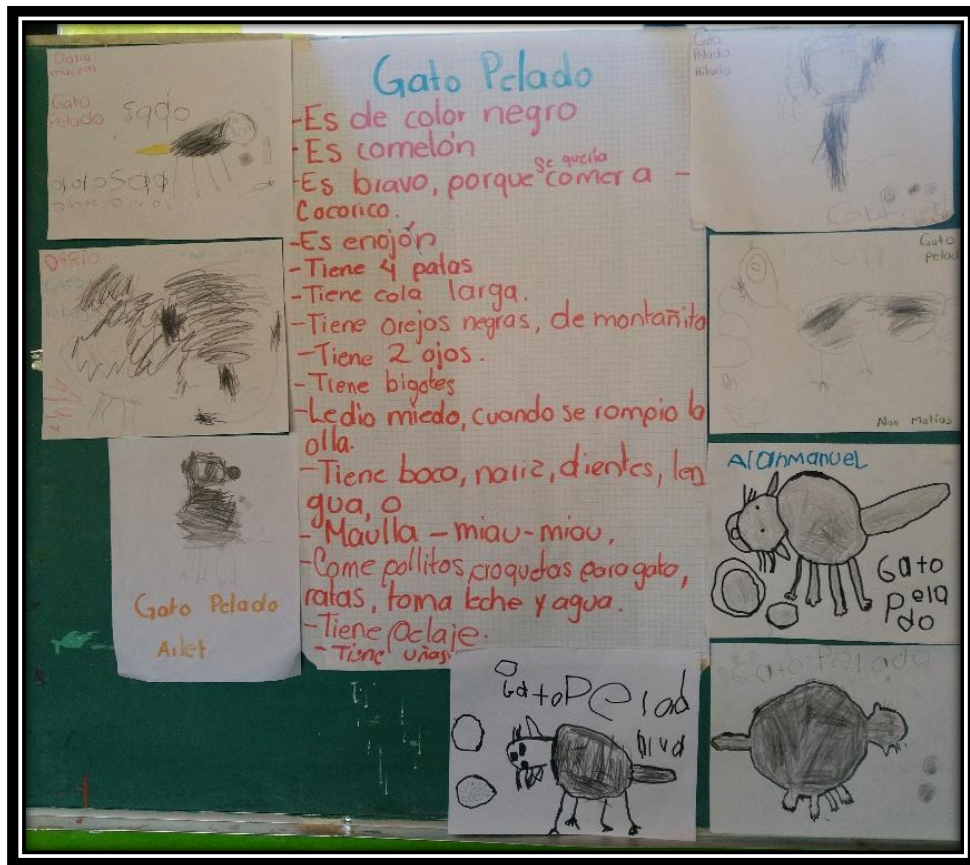 Gato Pelado
-Es de color negro
-Es comelón
se quería
-Es bravo, porque comer a -
Cocorico.
-Es enojón
-Tiene 4 patas
-Tiene cola larga.
-Tiene orejos negras, de montañita
-Tiene 2 ojos.
-Tiene bigotes
-Le dio miedo, cuando se rompio la
olla.
-Tiene boca, nariz, dientes, len
gua, o
- Maulla - miau-miau,
-Come pollitos, croquetas para gato,
ratas, toma leche y agua.
-Tiene pelaje.
- Tiene uñas
Gato
Pelado
DARIO
Gato Pelado
Ailet
Gato
Pelado
Hilario
Gato
Pelad
Alan Matías
Alanmanuel
Gato
Pela
do
Gato Pelad
Gato Pelado